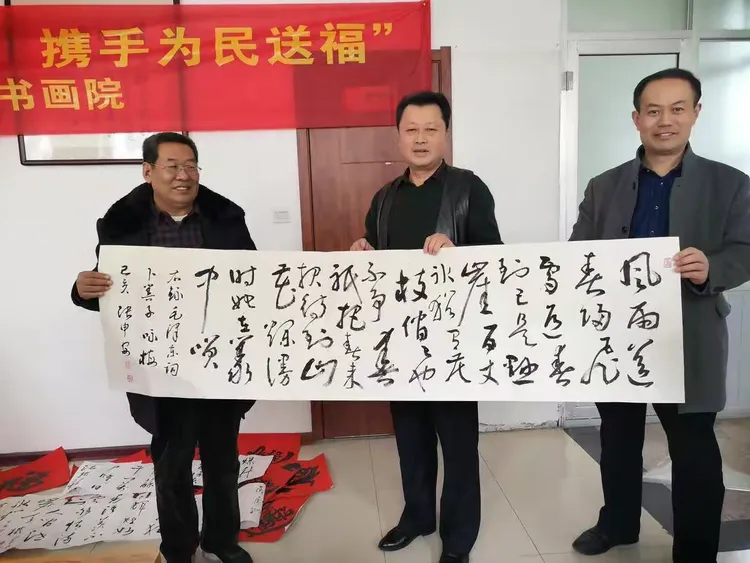 携手为民送福”
书画院
风雨送
春归飞
雪迎春
到已是悬
崖百丈
冰犹有花
枝俏俏也
不争春
祇把春来
报待到山
花烂漫
时她在丛
中笑
右录毛泽东词
卜算子咏梅
己亥